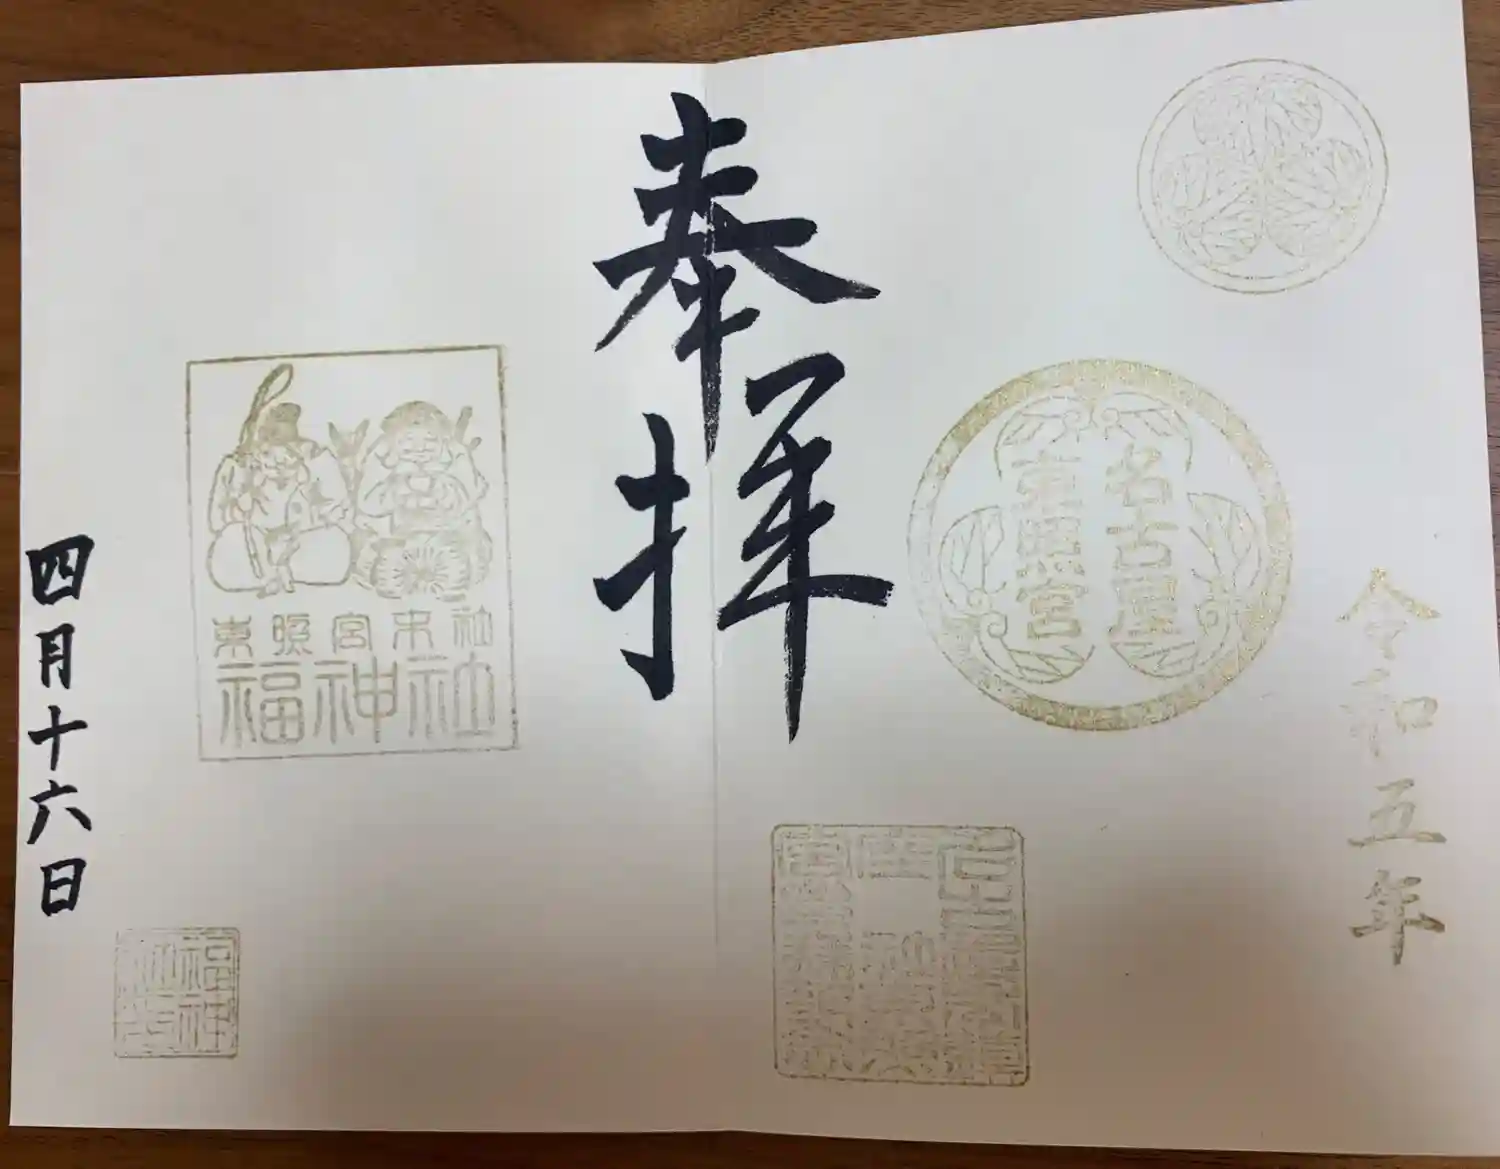 令和五年
名古屋
東照宮
奉拝
東照宮末社
福神社
四月十六日